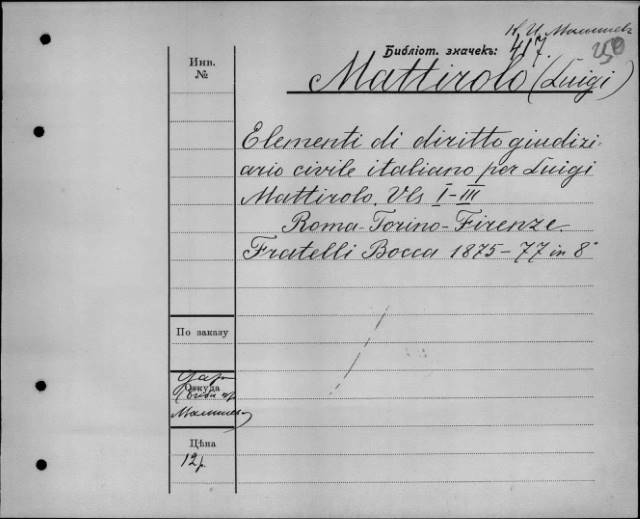 К. И. Малышев
Библіот. значекъ: 417.
Инв.
№
Mattirolo (Luigi)
Elementi di diritto giudizi-
ario civile italiano per Luigi
Mattirolo. Vls I-III
Roma-Torino-Firenze.
Fratelli Bocca 1875-77 in 8°
По заказу
Даръ
Откуда
Малышева
Цѣна
12р.